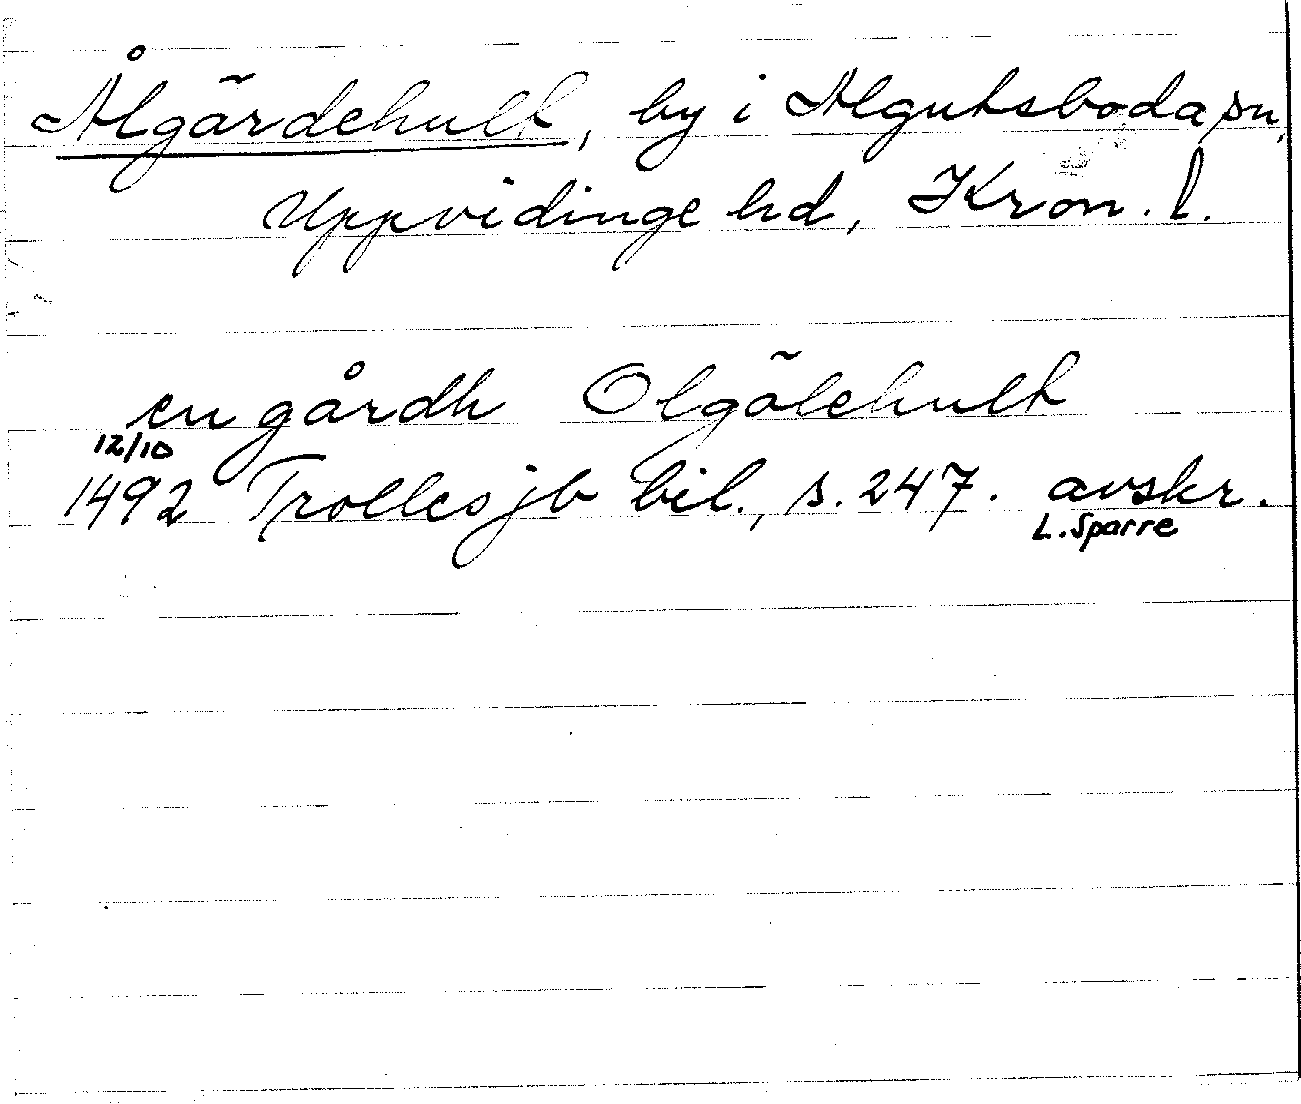 Ålgärdehult, by i Algutsboda sn,
Uppvidinge hd, Kron. l.
en gårdh Olgölehult
12/10
1492 Trolles jb bil., s. 247. avskr.
L. Sparre